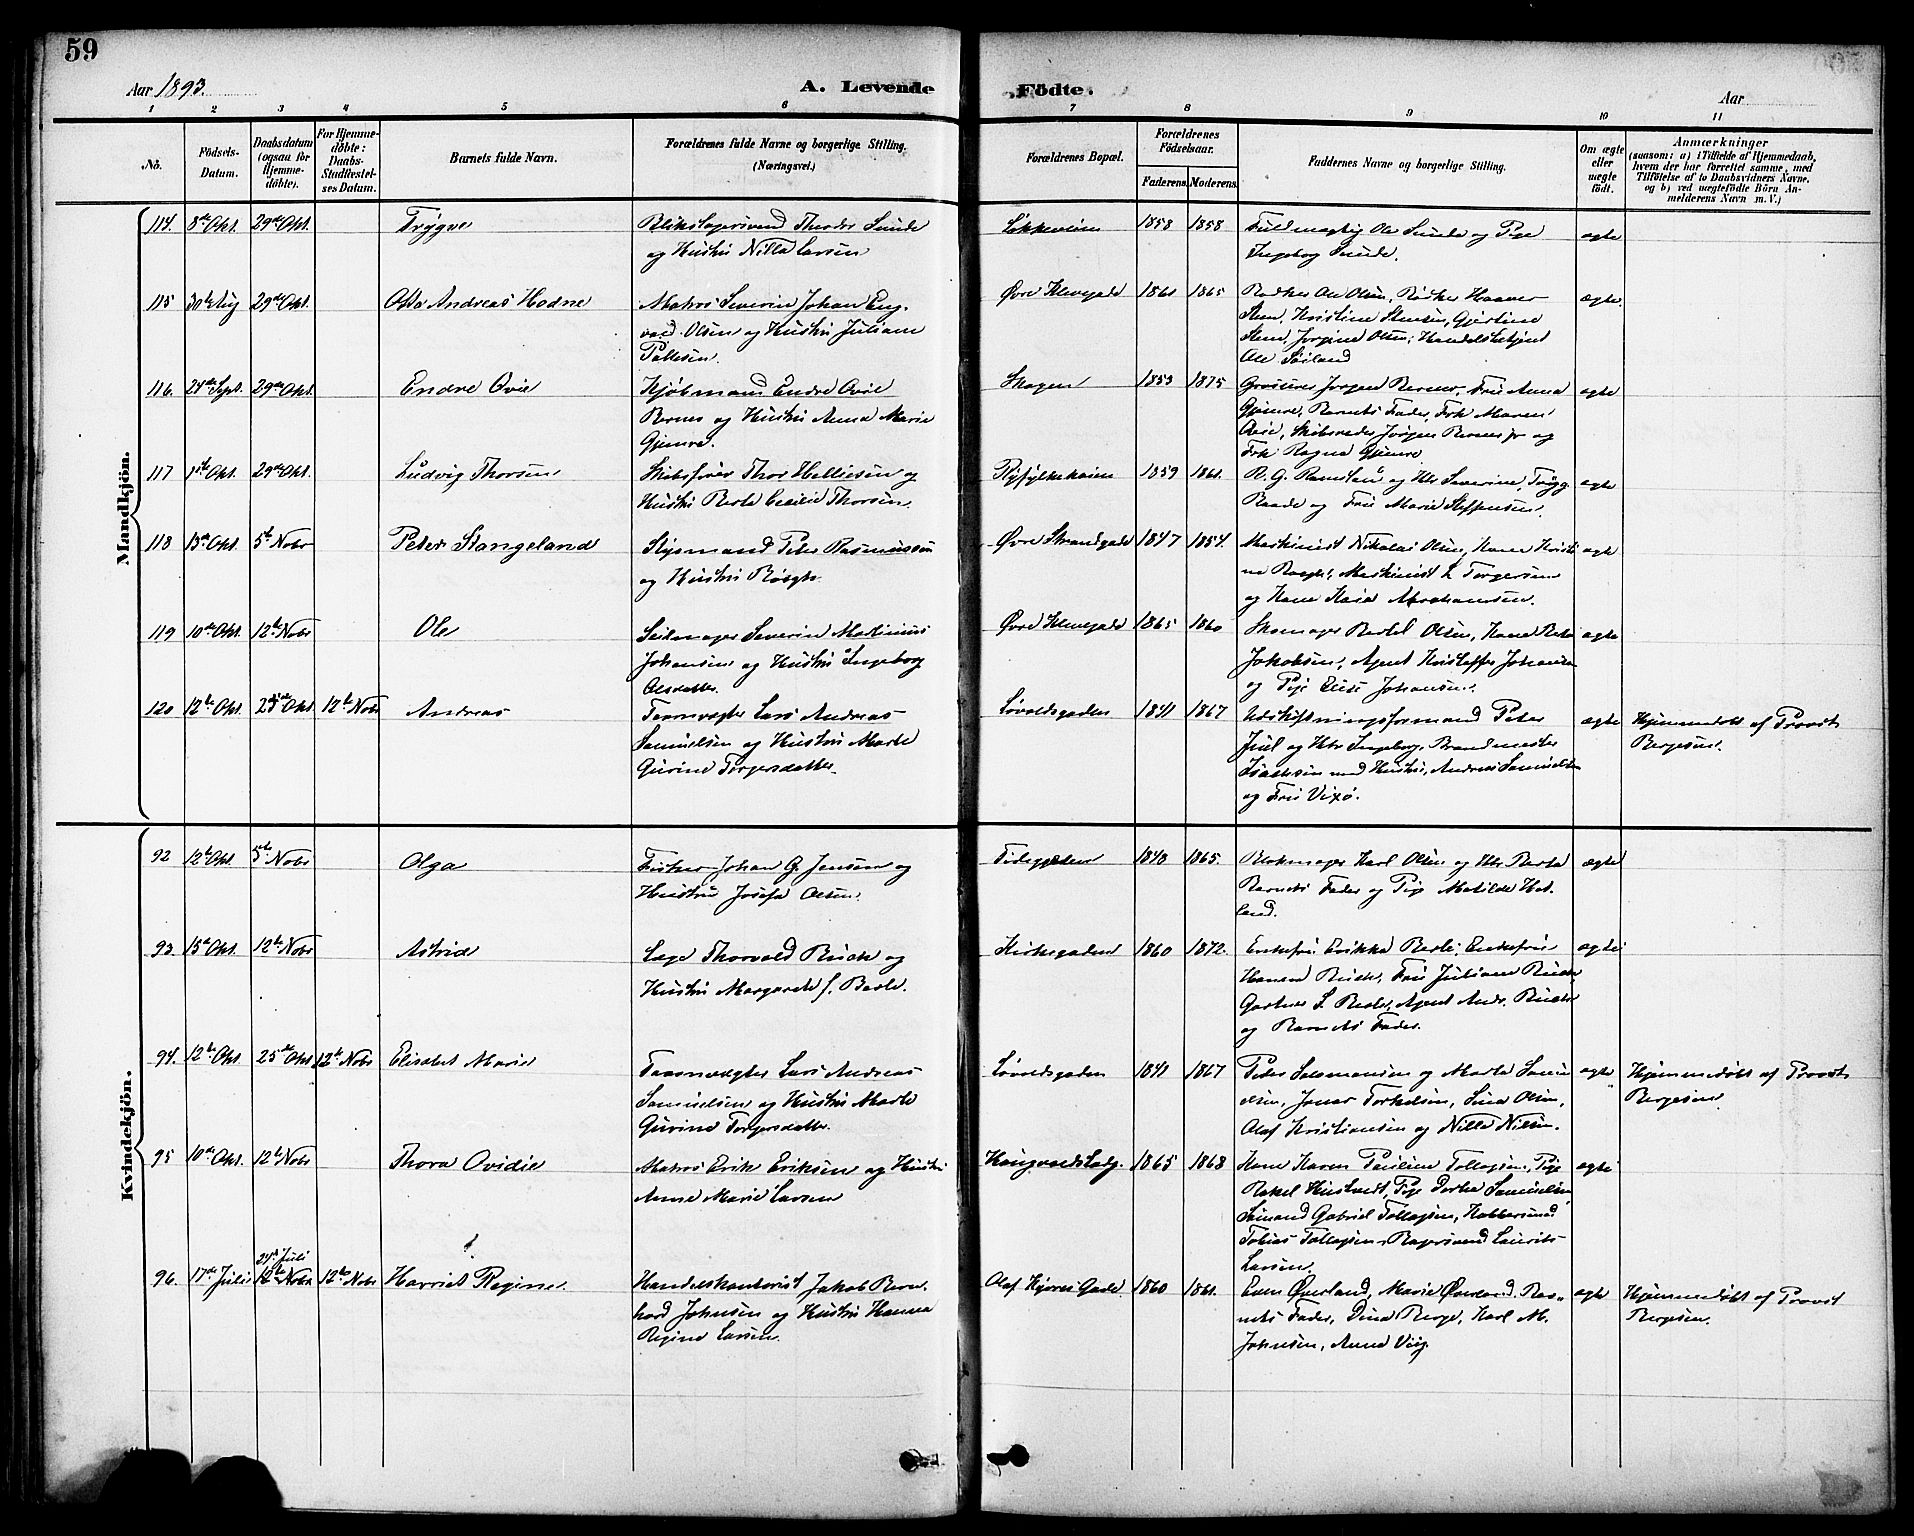 59
Aar 1893.
A. Levende Födte.
Aar
1 2 3 4 5 6 7 8 9 10 11
No.
Födsels-Datum.
Daabsdatum (ogsaa for Hjemmedöbte).
For Hjemmedöbte: Daabs-Stadfæstelses Datum.
Barnets fulde Navn.
Forældrenes fulde Navne og borgerlige Stilling.
(Næringsvei.)
Forældrenes Bopæl.
Forældrenes Födselsaar.
Faderens. Moderens.
Faddernes Navne og borgerlige Stilling.
Om ægte eller uægte födt.
Anmærkninger
(saasom: a) i Tilfælde af Hjemmedaab, hvem der har forrettet samme, med Tilföielse af to Daabsvidners Navne, og b) ved uægtefödte Börn Anmelderens Navn m. V.)
Mandkjön.
114. 8de Okt. 29de Okt. Trygve
Blikslagersvend Theodor Sunde
og Hustru Nilla Larsen
Løkkeveien 1858 1858
Fuldmægtig Ole Sunde og Pige
Ingeborg Sunde.
ægte
115 30te Aug 29de Okt. Otto Andreas Hodne
Matros Severin Johan Eng
vald Olsen og Hustru Juliane
Pallesen.
Øvre Klevegade 1861 1865
Rødker Ole Olsen, Rødker Haaver
Stene, Kristine Stensen, Gjertine
Stene, Jorgine Olsen, Handelsbetjent
Ole Soiland
ægte.
116. 24de Sept. 29de Okt. Endre Ovie
Kjøbmann Endre Ovie
Bernes og Hustru Anna Marie
Gjemre.
Skagen 1853 1875
Grosserer Jorgen Berner, Fru Anna
Gjemre, Barnets Fader, Frk Maren
Ovie, Skibsreder Jørgen Bernes jr og
Frk Ragna Gjemre
ægte
117 1ste Okt. 29de Okt. Ludvig Thorsen
Skibsfører Thor Helliesen og
Hustru Berta Cecilie Thorsen.
Ryfylkeveien 1859 1861.
R. G. Ramsland og Htr Severine, Trygg.
Raade og Fru Marie Steffensen.
ægte
118 13de Okt. 5te Nobr Peter Stangeland
Styrmand Peter Rasmussen
og Hustru Røsgt.
Øvre Strandgade 1847 1854.
Maskinist Nikolai Olsen, Kone Kristi
ne, Maskinist L Torgersen
og Kone Karia Abrahamsen.
ægte
119 10de Okt. 12te Nobr Ole
Seilmager Severin Martinius
Johansen og Hustru Ingeborg
Olsdatter.
Øvre Klevegade 1865 1860
Skomager Bertel Olsen, Kone Berta
Jakobsen, Agent Kristoffer Johansen
og Pige Elise Johansen.
ægte
120 12te Okt. 25de Okt 12te Nobr Andreas
Taarnvægter Lars Andreas
Samuelsen og Hustru Marte
Gurine Torgersdatter.
Løvoldsgaden 1841 1867
Udskiftningsformand Peter
Juel og Htr Ingeborg, Brandmester
Isachsen med Hustru, Andreas Samuelsen
og Fru Vixø.
ægte
Hjemmedøbt af Provst
Bergesen.
Kvindekjön.
92 12te Okt. 5te Nobr Olga
Fisker Johan G. Jensen og
Hustru Josefa Olsen.
1848 1865.
Blokmager Karl Olsen og Htr Berta
Barnets Fader og Pige Matilde Het
land.
ægte
93. 15de Okt. 12te Nobr Astrid
Læge Thorvald Buch og
Hustru Margarete f. Berle.
Kirkegaden 1860 1872.
Enkefru Erikka Berle, Enkefru
Hanna Buch, Fru Juliane Buch,
Gartner L. Berle, Agent Andr. Buch
og Barnets Fader.
ægte
94. 12te Okt. 25de Okt 12te Nobr Elisabet Marie
Taarnvægter Lars Andreas
Samuelsen og Hustru Marte
Gurine Torgersdatter.
Løvoldsgaden 1841 1867
Peder Salomonsen og Marta Samu
elsen, Jonas Torkelsen, Sina Olsen,
Olaf Kristiansen og Nilla Nilsen.
ægte
Hjemmedøbt af Provst
Bergesen.
95 10de Okt. 12te Nobr Thora Ovidie
Matros Erik Eriksen og Hustru
Anna Marie Larsen
Haugvaldstadg. 1865 1868
Kone Karen Pauline Tollagsen, Pige
Rakel Hustvedt, Pige Dortea Samuelsen
Sømand Gabriel Tollagsen, Kobbersmed
Tobias Tollagsen, Bagersvend Laurits
Larsen.
ægte
24de Juli
96. 17de Juli 12te Nobr 12te Nobr Harriet Regine.
Handelskontorist Jakob Bern
hard Johnsen og Hustru Hanna
Regine Larsen.
Olaf Kyrres Gade 1860 1861.
Even Øverland, Marie Øverland, Bar-
nets Fader, Dina Berge, Karl M.
Johnsen, Anna Viig.
ægte
Hjemmedøbt af Provst
Bergesen.